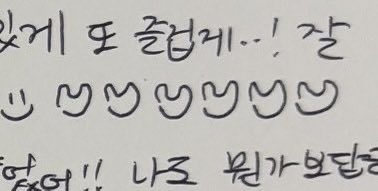 있게 또 즐겁게..! 잘
었어!! 나도 뭔가 보답